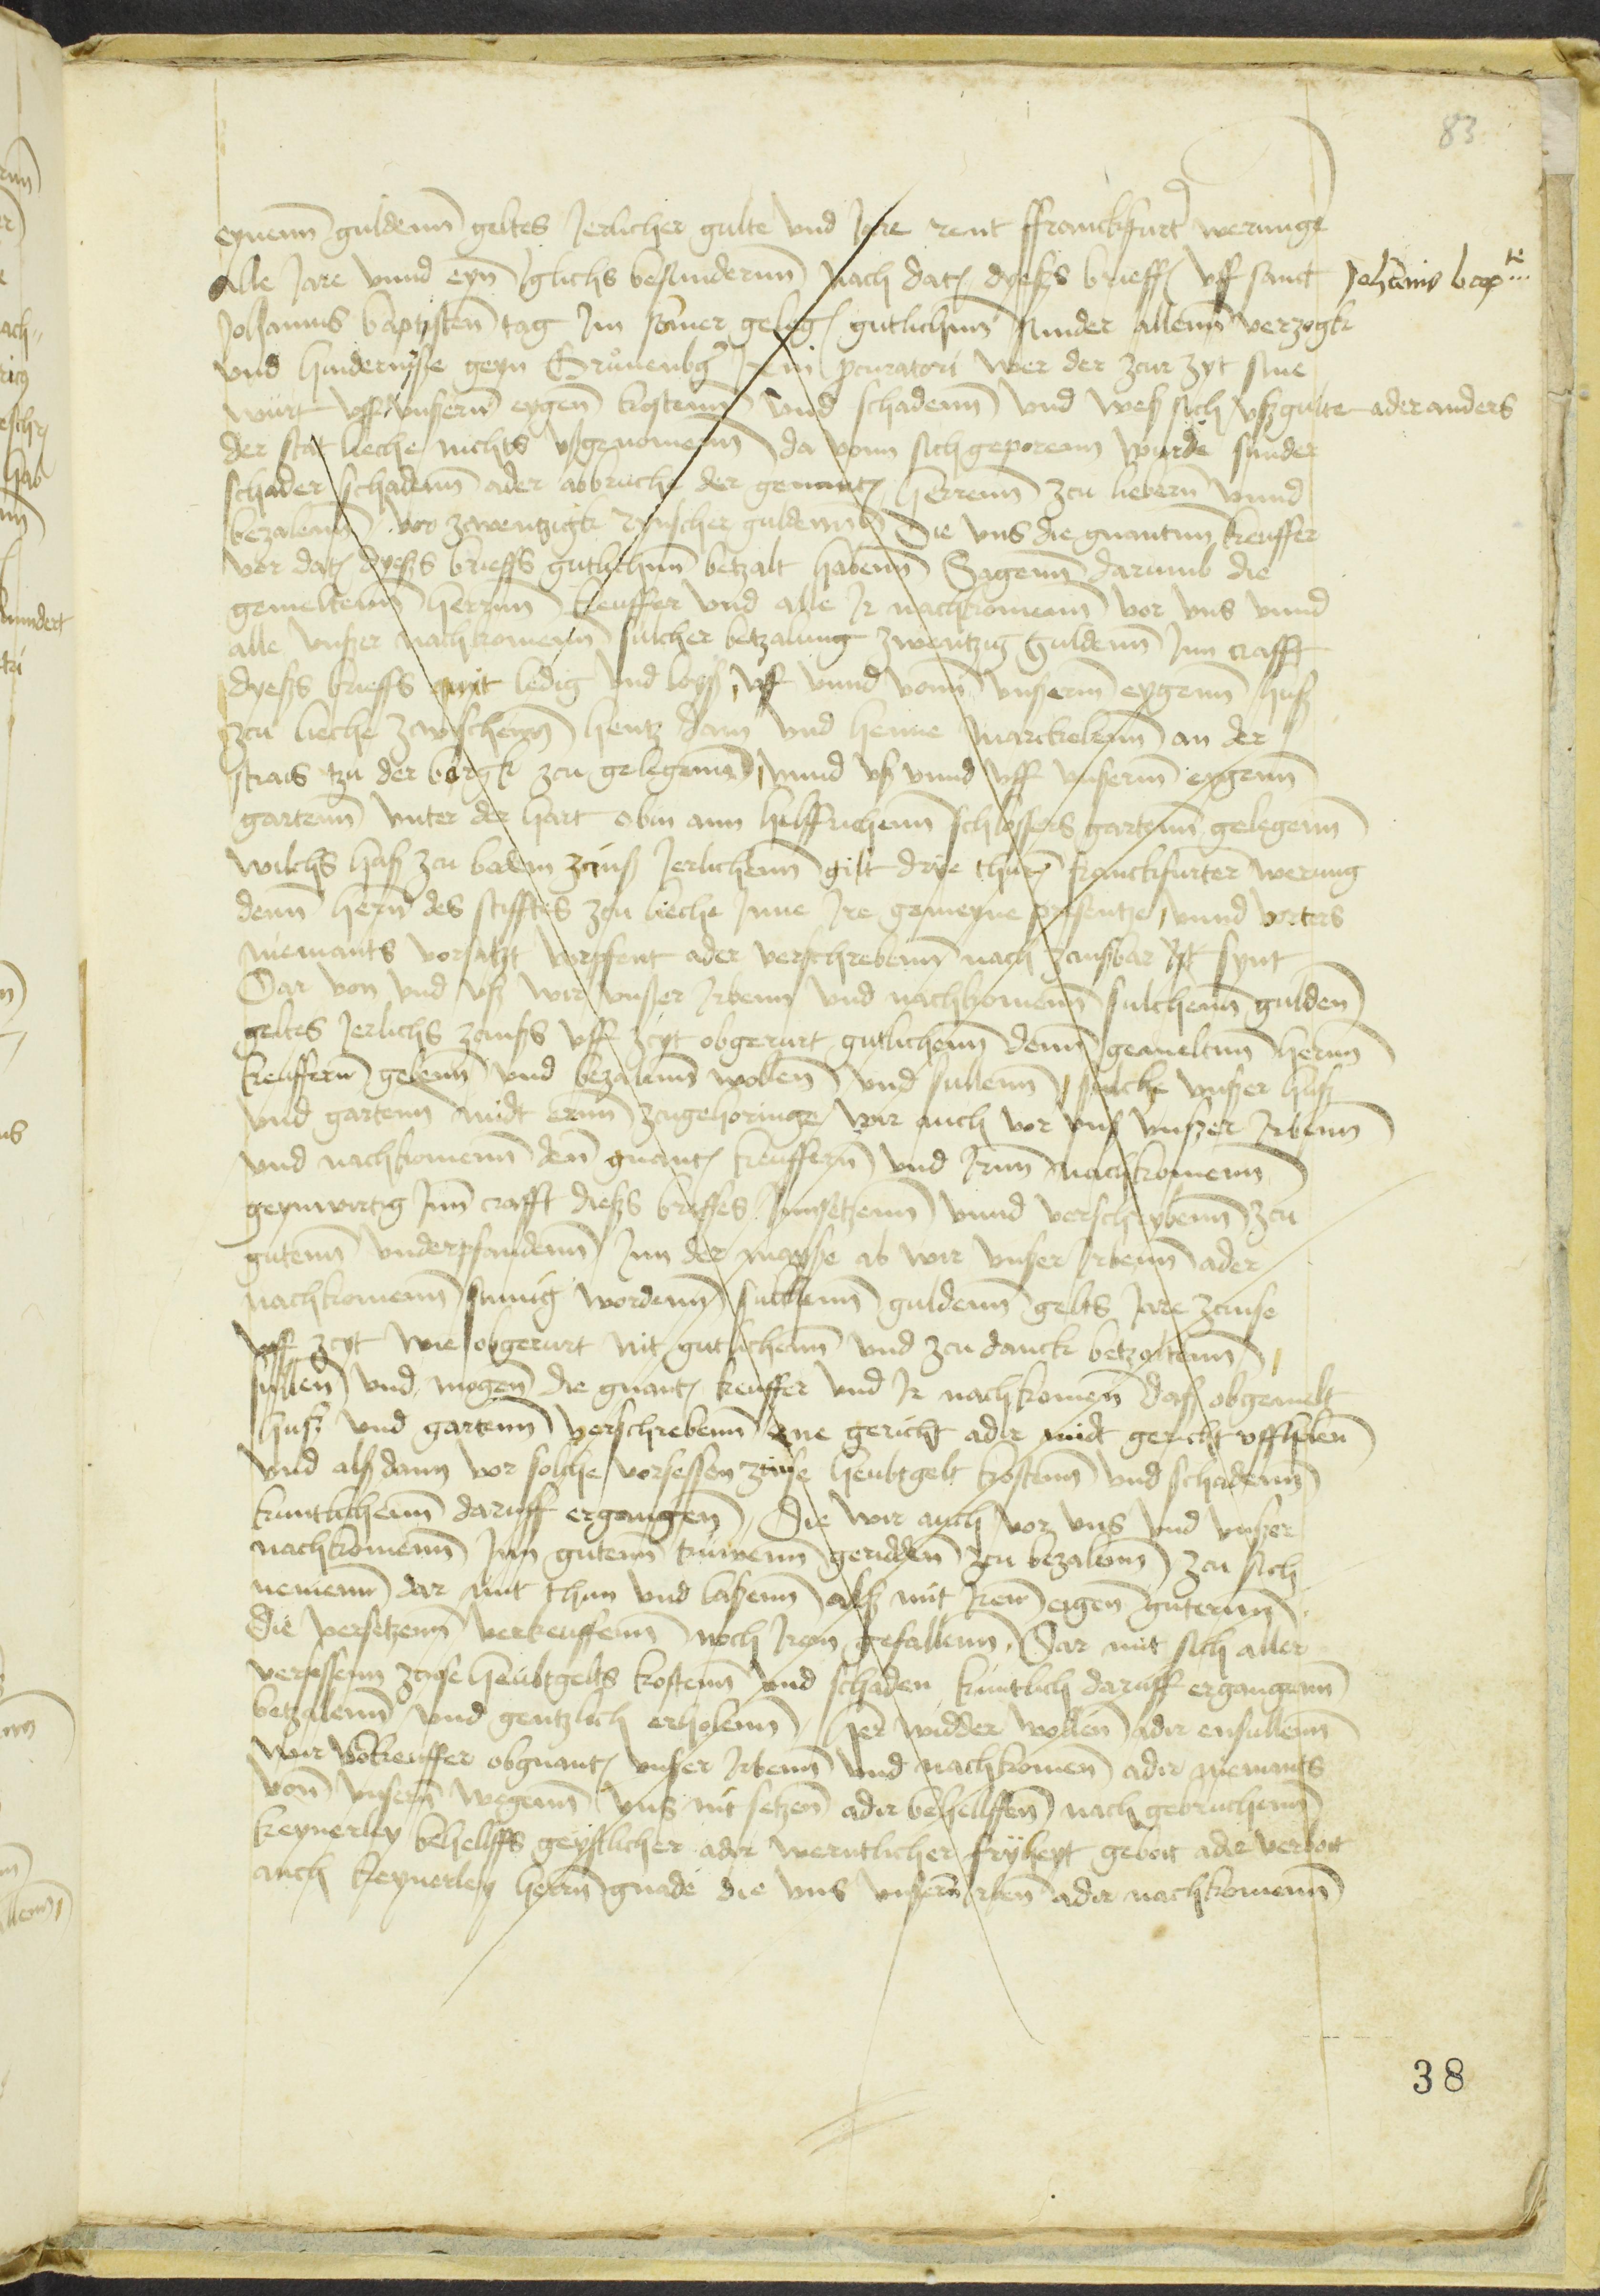 83
eynenn guldenn geltes Jerlicher gulte vnd Jare rent ffranckfurt werunge
alle Jare vnnd eyn iglichs besundernn nach dat dyeßs brieff vff sanct Johannis bap
Johannis baptisten tag Im somer geleg gutlichenn sunder allenn verzogk
vnd hindernisse geyn Grunenbg Irm procuratori wer der zcur zyt sine
wurt vff vnsern eygen kostenn vnd schadenn vnd weß sich vßgulte ader anders
der stat lieche nichts vßgenomenn da vonn sich geporenn wurde sunder
schader schadenn ader abbruche der genant herrenn zcu liebern vnnd
bezalenn vor zcwentzigk rynscher guldennn die vns die gnantnn keuffer
vor dat dyeßs brieffs gutlichnn betzalt habenn Sagenn darumb die
gemeltenn herrnn keuffer vnd alle Ir nachkomenn vor vns vnnd
alle vnßer nachkomenn sulcher betzalung zwentzig guldenn Inn crafft
dyeßs brieffs quit ledig vnd loyß, vff vnnd vonn vnßernn eygenn huß
zcu lieche zcwischenn hentz dam vnd henne marckelenn an der
strais tzu der borgk zcu gelegenn, vnnd vß vnnd vff vnsernn eygenn
gartenn vnter der hart obin ann helffrichenn schlossers gartenn gelegenn
wilchs huß zcu bodem zcinß Jerlichenn gilt drye thur franckfurter werung
denn hern des stifftes zcu lieche Inne Ire gemeyne presentze, vnnd vorters
niemants vorsatzt vorpfent ader verschrebenn nach zcinßbar ist synt
Dar von vnd vß wir vnßer Irbenn vnd nachkomenn sulchenn gulden
geltes Jerlichs zcinßs vff zcyt obgerurt gutlichenn denn gemeltnn hernn
keuffern gebenn vnd bezalenn wollen vnd sullenn, solche vnßer huß
vnd gartenn midt erenn zcugehoringe wir auch vor vns vnßer Irbenn
vnd nachkomenn den gnant keuffern vnd Irnn nachkomenn
geynwirtig Inn crafft dießs brieffes Innsetzenn vnnd verscheybenn zcu
gutenn vnderpfandenn Inn der maysse ab wir vnßer Irbenn ader
nachkomenn sumig wordenn sulchenn guldenn gelts Jare zcinse
vff zcyt wie obgerurt nit gutlichenn vnd zcu danck betzaltenn,
sullen vnd mogen die gnant keuffer vnd Ir nachkomen daß obgemelt
huß vnd gartenn verschrebenn ane gericht ader midt gericht vffholen
vnd alß dann vor solche vorsessen zcinse heubtgelt kostenn vnd schadenn
kuntlichenn daruff ergangen, die wir auch vor vns vnd vnßer
nachkomenn Inn gutenn truwenn geridden zcu bezalenn zcu sich
nemenn dar mit thun vnd laßenn alß mit Iren eigen guternn
die versetzenn verkeuffenn noch Irem gefallenn, Dar mit sich aller
versessenn zcinse heubtgelts kostenn vnd schaden kuntlich daruff ergangenn
betzalenn vnd gentzlich erholenn, Her widder wollen ader ensullenn
wir vorkeuffer obgnant vnßer Irbenn vnd nachkomen ader niemants
von vnsern wegenn vns nit setzen ader behelffen nach gebruchenn
keynerley behelffs geystlicher ader werntlicher fryheyt gebott ader verbott
auch keynerley herrn gnade die vns vnsern Irben ader nachkomenn
38